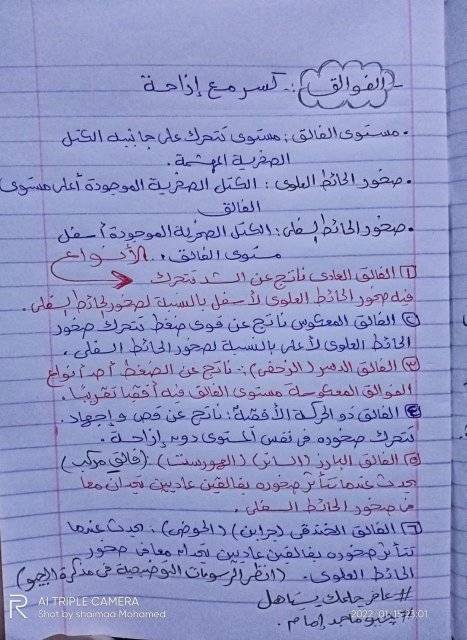 الفوالق :- كسر مع إزاحة
• مستوى الفالق : مستوى تتحرك على جانبيه الكتل
الصخرية المهشمة .
• صخور الحائط العلوى : الكتل الصخرية الموجودة أعلى مستوى
الفالق
• صخور الحائط السفلى : الكتل الصخرية الموجودة أسفل
مستوى الفالق . الأنواع
١ الفالق العادى ناتج عن الشد تتحرك
فيه صخور الحائط العلوى لأسفل بالنسبة لصخور الحائط السفلى .
٢ الفالق المعكوس ناتج عن قوى ضغط تتحرك صخور
الحائط العلوى لأعلى بالنسبة لصخور الحائط السفلى .
٣ الفالق الدسر (الزحفى) :- ناتج عن الضغط أحد أنواع
الفوالق المعكوسة مستوى الفالق فيه أفقيا تقريبا .
٤ الفالق ذو الحركة الأفقية : ناتج عن قص وإجهاد .
تتحرك صخوره فى نفس المستوى دون إزاحة .
٥ الفالق البارز (الساتر) (الهورست) (فالق مركب)
يحدث عندما تتأثر صخوره بفالقين عاديين يتحدان معا
فى صخور الحائط السفلى .
٦ الفالق الخندقى (جرابن) (الحوض) . يحدث عندما
تتأثر صخوره بفالقين عاديين يتحدان معا فى صخور
الحائط العلوى . (انظر الرسومات التوضيحية فى مذكرة الجيو)
#عافر حلمك يستاهل
محمد إمام .
AI TRIPLE CAMERA
Shot by shaimaa Mohamed
2022/01/15 23:01